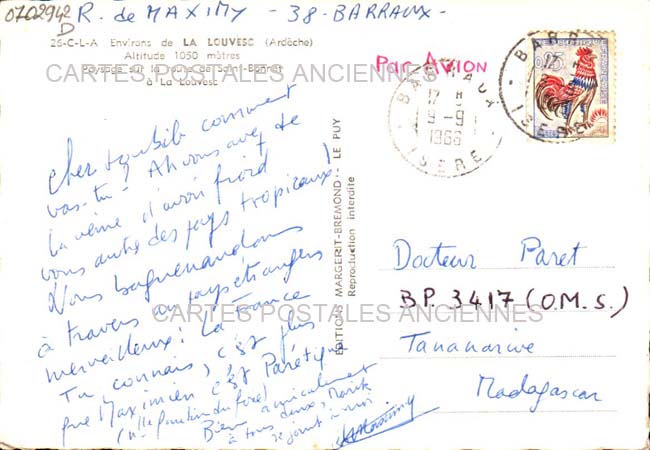 0702942
D
R. de MAXIMY - 38 - BARRAUX -
26-C-L-A Environs de LA LOUVESC (Ardèche)
Altitude 1050 mètres
Paysage sur la route de Saint-Bonnet
à La Louvesc
Par Avion
BARRAUX
17 H
9-9
1966
ISERE
BARR
ISERE
0,25
CARTES POSTALES ANCIENNES
Cher toubib comment
vas-tu? Ah vous avez de
la veine d'avoir froid
vous autre des pays tropicaux!
Nous baguenaudons
à travers un pays étrangers
merveilleux: La France
Tu connais, c'est plus
que Maximien c'est Parétique
Bien amicalement
à tous deux,
se joint à moi
EDITIONS MARGERIT-BREMOND - LE PUY
Reproduction interdite
Docteur Paret
B.P. 3417 (O.M.S.)
CARTES POSTALES ANCIENNES
Tananarive
Madagascar